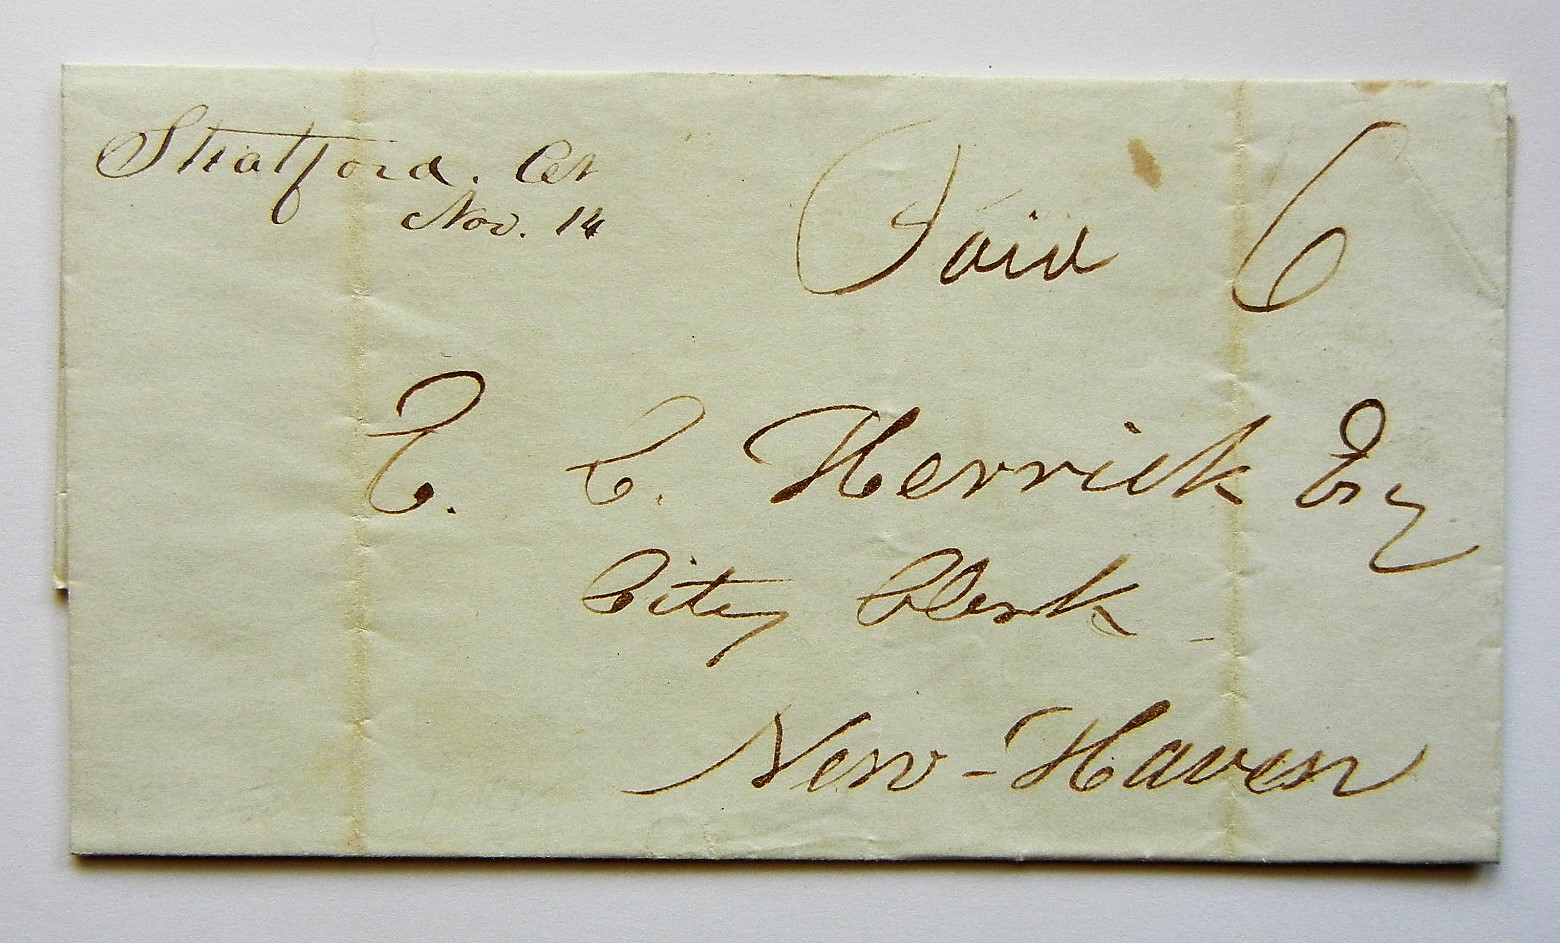 Stratford. Ct
Nov. 14
Paid 6
E. C. Herrick Esq
City Clerk
New-Haven